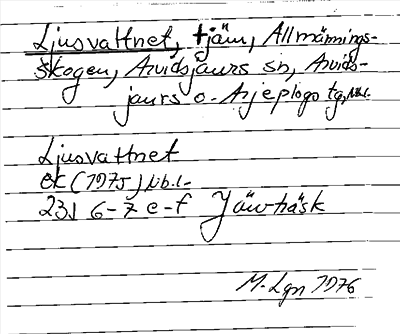 Ljusvattnet, tjärn, Allmännings-
skogen, Arvidsjaurs sn, Arvids-
jaurs o. Arjeplogs tg, Nbl.
Ljusvattnet
ek (1975) Nb.l.
23J 6-7 e-f Järvträsk
M. Lgn 1976